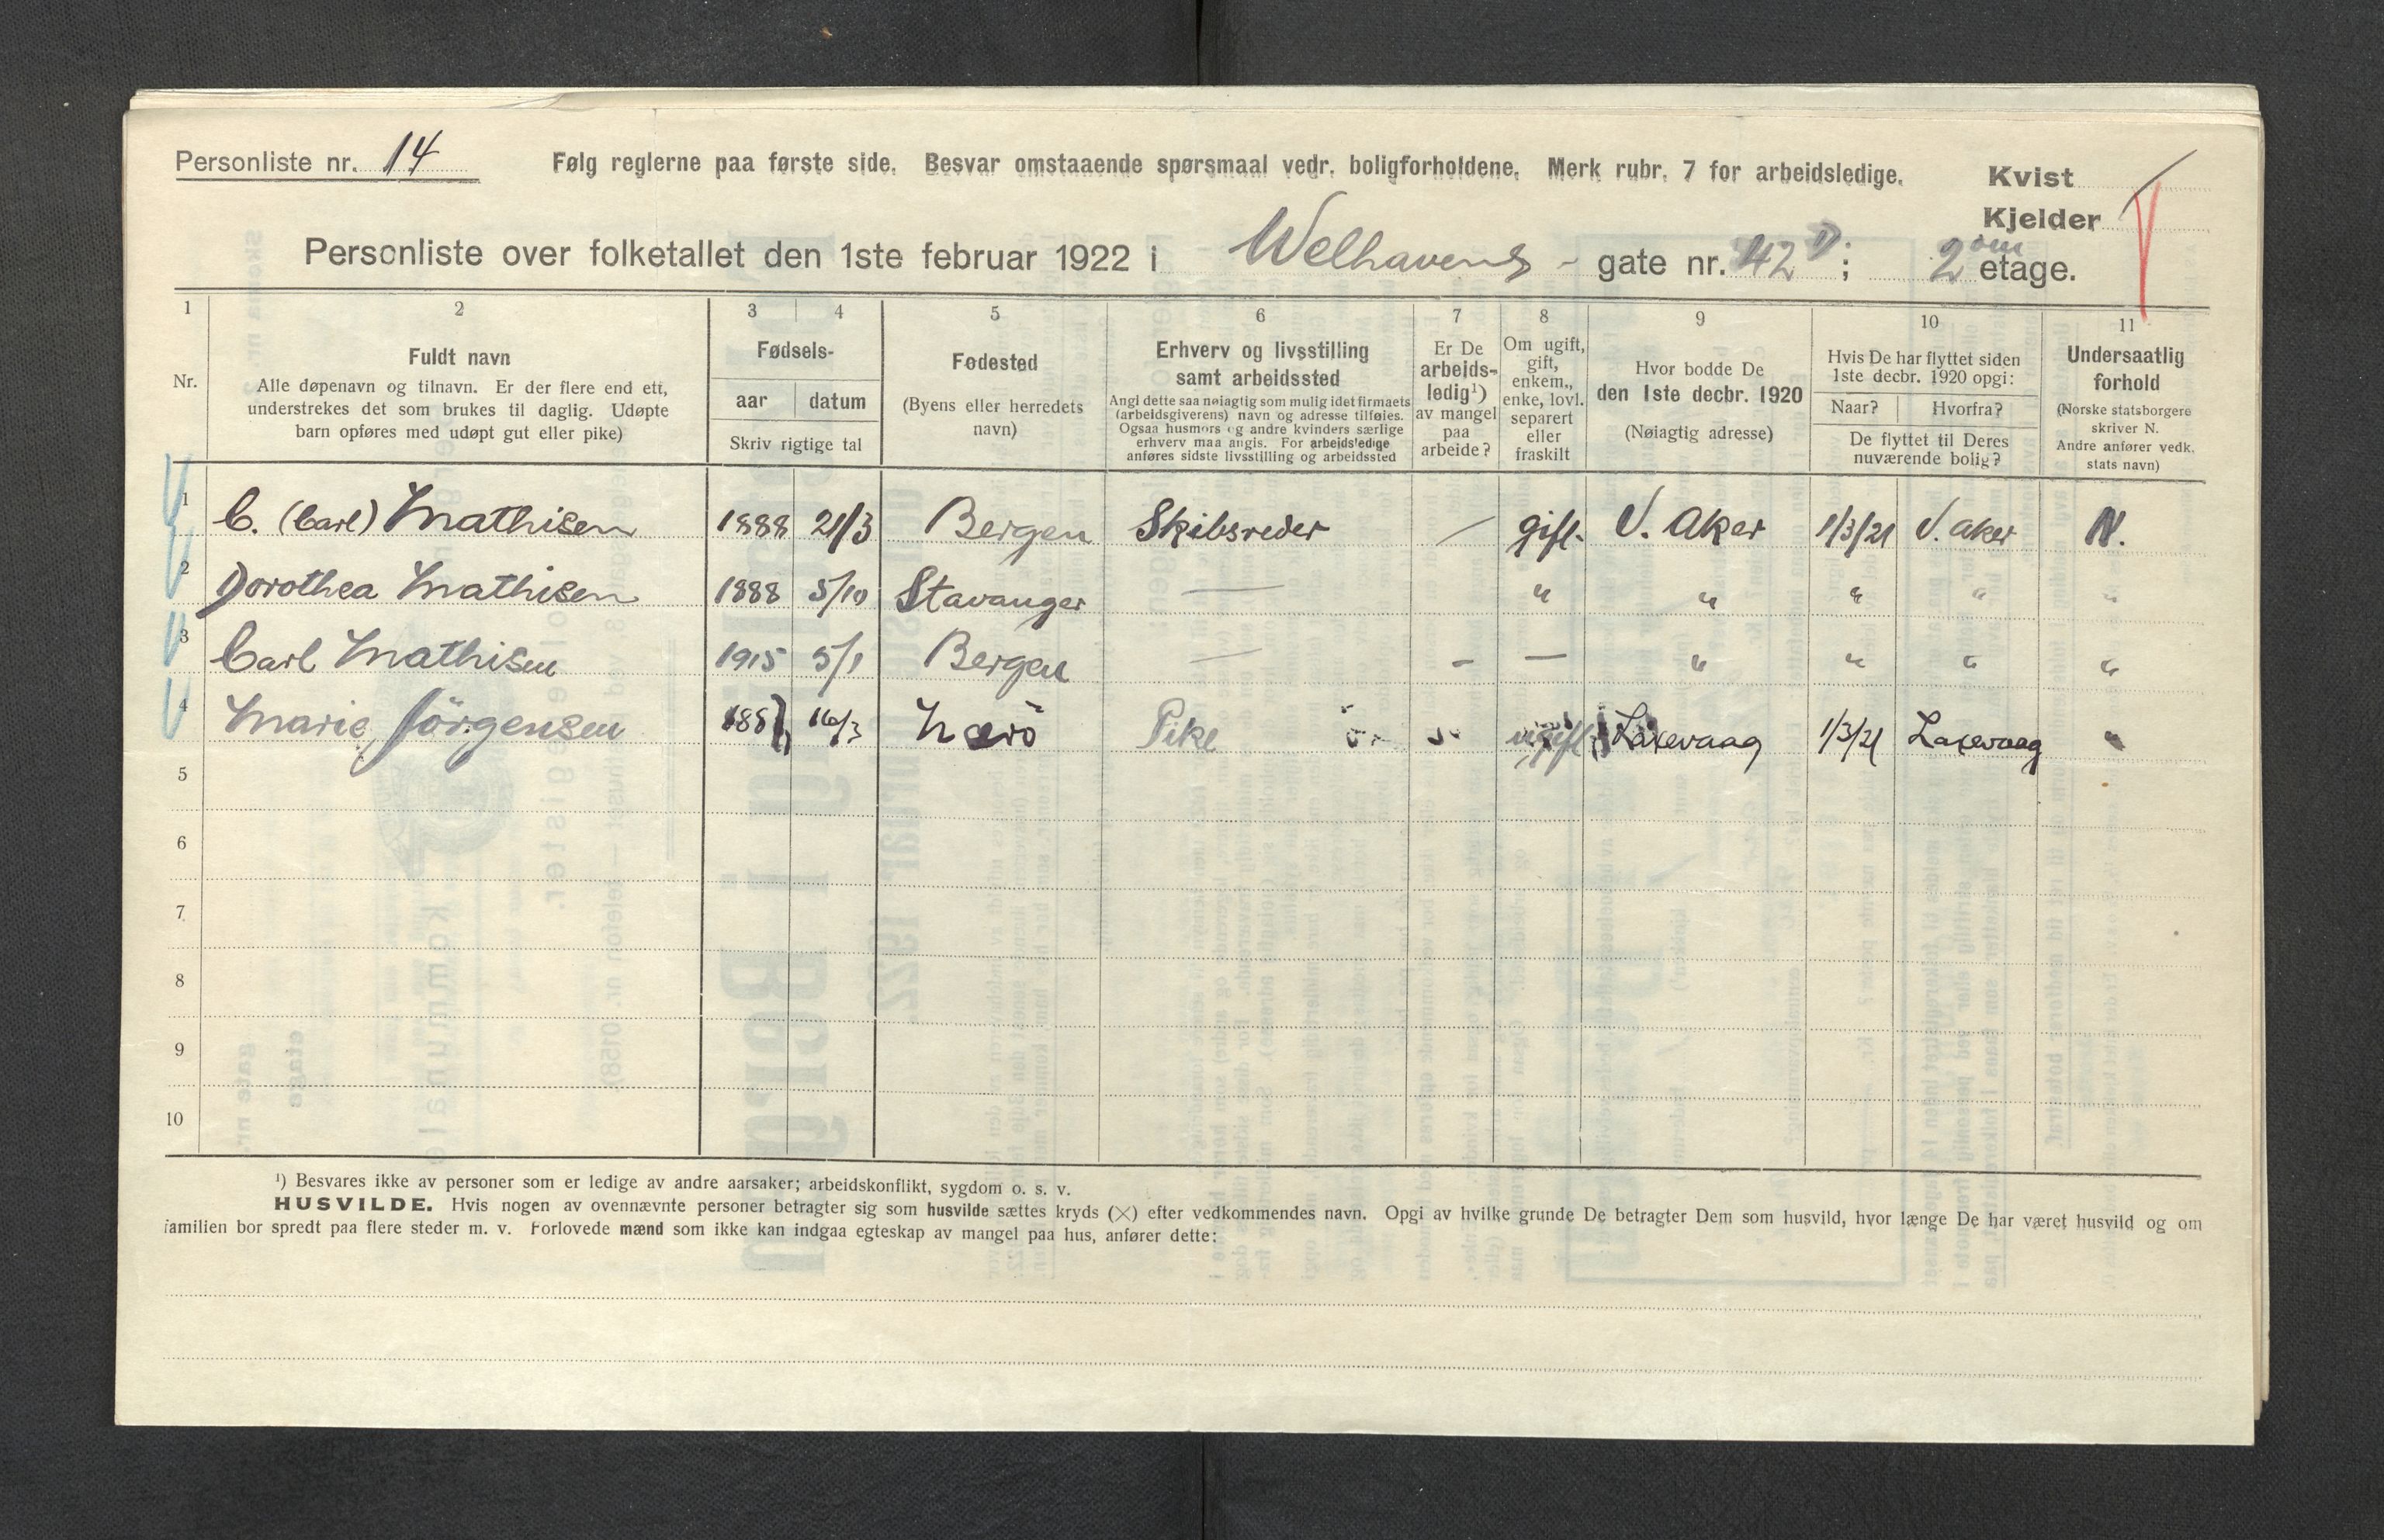 Personliste nr. 14
Følg reglerne paa første side. Besvar omstaaende spørsmaal vedr. boligforholdene. Merk rubr. 7 for arbeidsledige.
Kvist
Kjelder
Personliste over folketallet den 1ste februar 1922 i Welhavens - gate nr. 42 ; 2 etage.
1 2 3 4 5 6 7 8 9 10 11
Nr.
Fuldt navn
Alle døpenavn og tilnavn. Er der flere end ett,
understrekes det som brukes til daglig. Udøpte
barn opføres med udøpt gut eller pike)
Fødsels-
aar datum
Skriv rigtige tal
Fødested
(Byens eller herredets
navn)
Erhverv og livsstilling
samt arbeidssted
Angi dette saa nøiagtig som mulig idet firmaets
(arbeidsgiverens) navn og adresse tilføies.
Ogsaa husmors og andre kvinders særlige
erhverv maa angis. For arbeidsledige
anføres sidste livsstilling og arbeidssted
Er De
arbeids-
ledig¹)
av mangel
paa
arbeide?
Om ugift,
gift,
enkem.,
enke, lovl.
separert
eller
fraskilt
Hvor bodde De
den 1ste decbr. 1920
(Nøiagtig adresse)
Hvis De har flyttet siden
1ste decbr. 1920 opgi:
Naar? Hvorfra?
De flyttet til Deres
nuværende bolig?
Undersaatlig
forhold
(Norske statsborgere
skriver N.
Andre anfører vedk.
stats navn)
1 C. (Carl) Mathisen 1888 21/3 Bergen Skibsreder / gift. V. Aker 1/3/21 V. aker N.
2 Dorothea Mathisen 1888 5/10 Stavanger — " " " " "
3 Carl Mathisen 1915 5/1 Bergen — - — " " " "
4 Marie Jörgensen 16/3 Nærö Pike ugift Laxevaag 1/3/21 Laxevaag "
5
6
7
8
9
10
¹) Besvares ikke av personer som er ledige av andre aarsaker; arbeidskonflikt, sygdom o. s. v.
HUSVILDE. Hvis nogen av ovennævnte personer betragter sig som husvilde sættes kryds (×) efter vedkommendes navn. Opgi av hvilke grunde De betragter Dem som husvild, hvor længe De har været husvild og om
familien bor spredt paa flere steder m. v. Forlovede mænd som ikke kan indgaa egteskap av mangel paa hus, anfører dette: